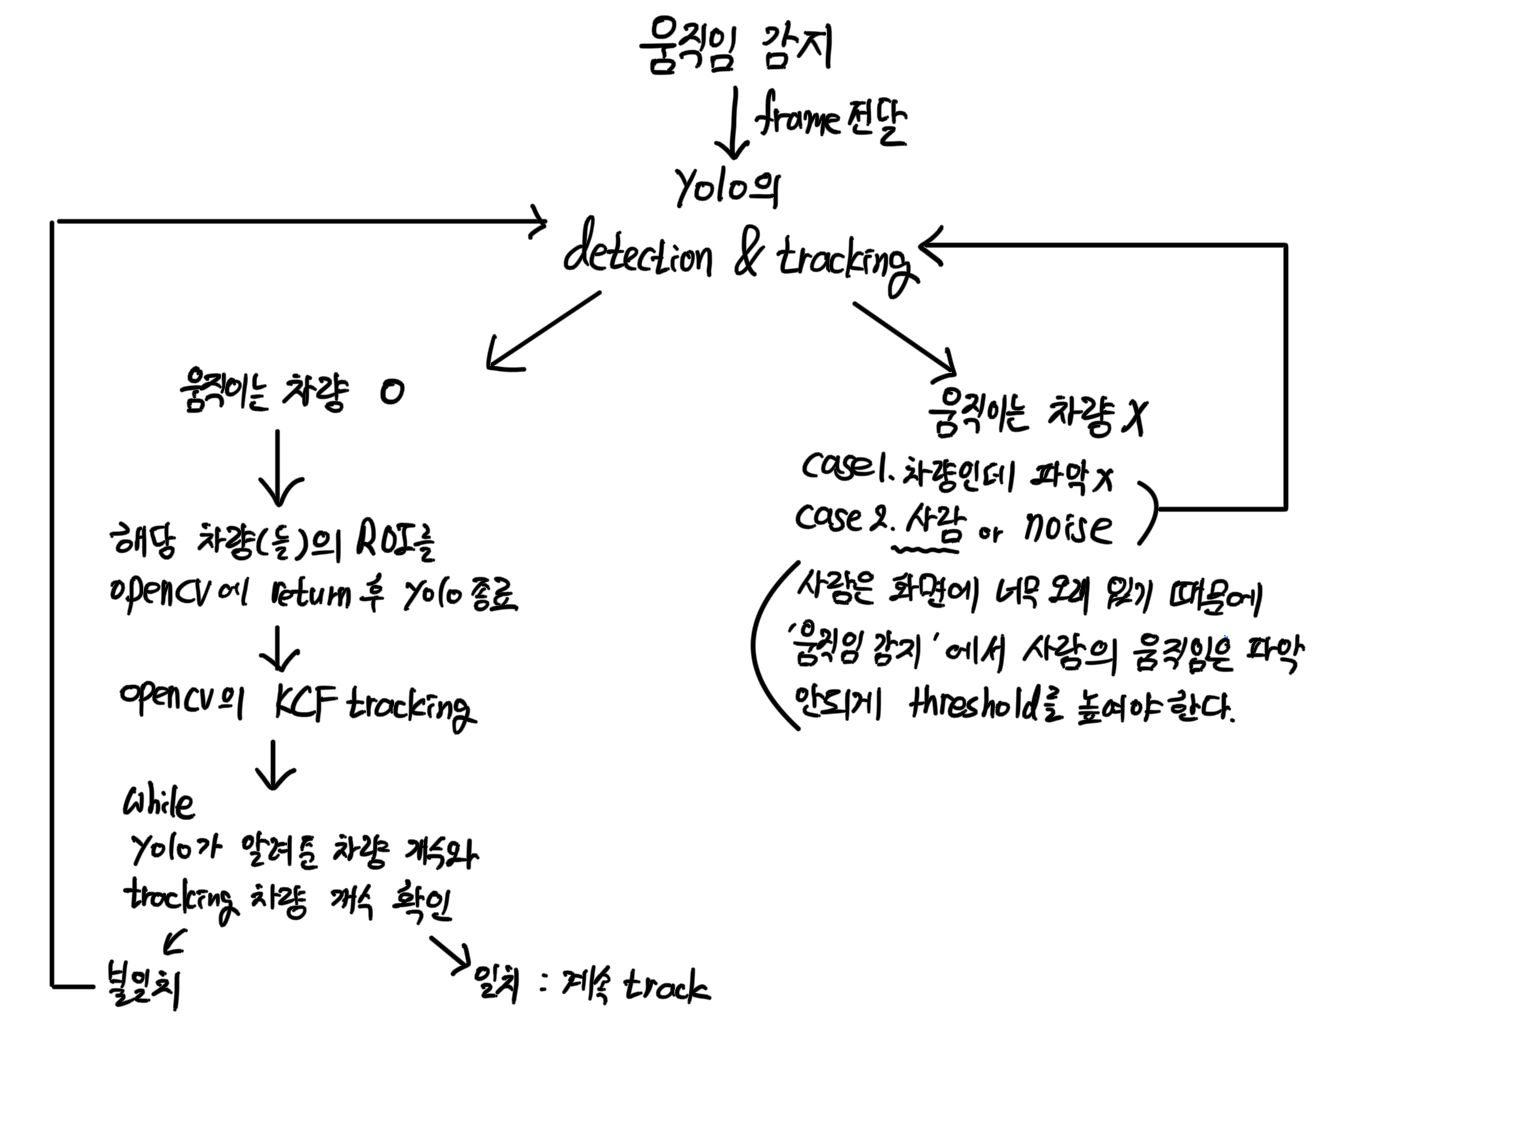 움직임 감지
frame 전달
Yolo의
detection & tracking
움직이는 차량 O
해당 차량(들)의 ROI를
opencv에 return 후 Yolo 종료
opencv의 KCF tracking
While
Yolo가 알려준 차량 개수와
tracking 차량 개수 확인
불일치
일치 : 계속 track
움직이는 차량 X
case1. 차량인데 파악x
case2. 사람 or noise
사람은 화면에 너무 오래 있기 때문에
'움직임 감지'에서 사람의 움직임은 파악
안되게 threshold를 높여야 한다.